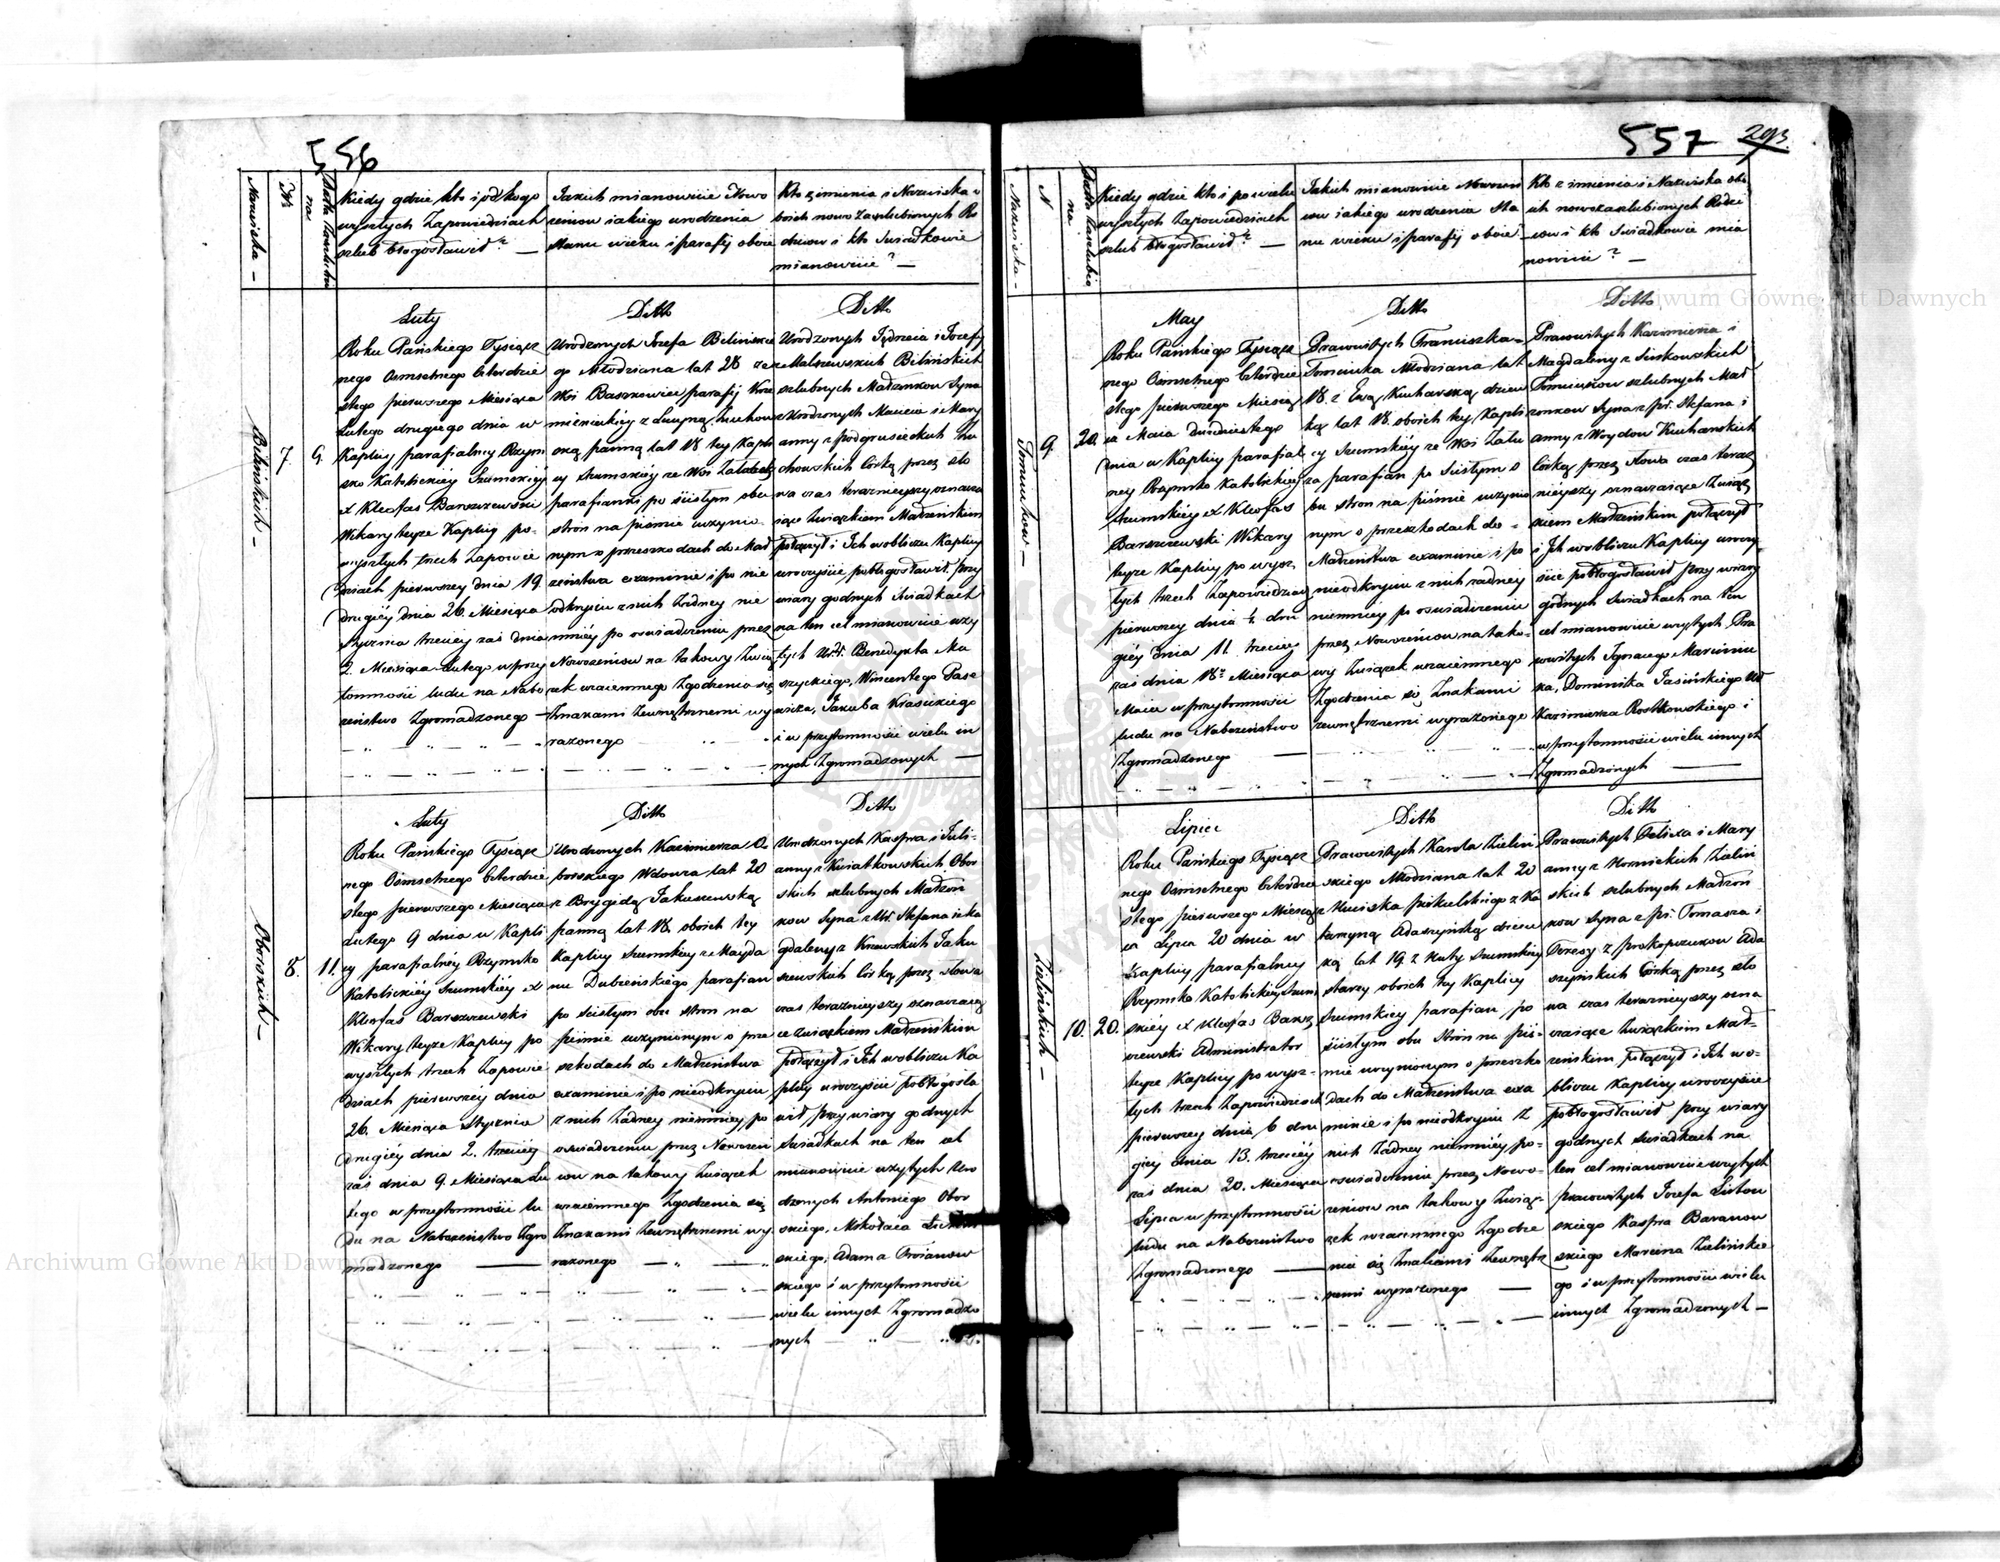 556
Nazwiska —
N
Data zaslubin
na
Kiedy gdzie kto i po kogo
wyszłych Zapowiedziach
szlub błogosławił? —
Jakich mianowicie Nowo
rzeniow iakiego urodzenia
Stanu wieku i parafij oboie
Kto z imienia i Nazwiska o
boich nowo Zaszlubionych Ro
dziców i kto Swiadkowie
mianowicie? —
Bilinskich —
7.
9.
Luty
Roku Pańskiego Tysiącz
nego Osmsetnego Czterdzie
stego pierwszego Miesiąca
Lutego drugiego dnia w
Kaplicy parafialney Rzym
sko Katolickiéy Szumskiéy
X Kleofas Barszczewski
Wikary teyże Kaplicy po
wyszłych trzech Zapowie
dziach pierwszey dnia 19.
drugiéy dnia 26. Miesiąca
Stycznia trzeciey zaś dnia
2. Miesiąca Lutego w przy
tomności ludu na Nabo
żeństwo Zgromadzonego —
Ditto
Urodzonych Jozefa Bilinskie
go Młodziana lat 28 ze
Wsi Baszkowiec parafij Krze
mienieckiéy z Lucyną Zuchow
ską panną lat 18 tey Kapli
cy Szumskiéy ze Wsi
parafianki po scistym obu
stron na piśmie uczynio
nym o przeszkodach do Mał
żeństwa examinie i po nie
odkryciu z nich Żadney nie
mniéy po oswiadczeniu przez
Nowożeniow na takowy Zwią
zek wzaiemnego Zgodzenia się
Znakami Zewnętrznemi wy
rażonego
Ditto
Urodzonych Jędrzeia i Jozefy
z Malszewskich Bilińskich
szlubnych Małżonkow Syna
z Urodzonych Macieia i Mary
anny z Podgrusieckich Zu
chowskich Córką przez sło
wa czas teraznieyszy oznacza
iące Związkiem Małżeńskim
połączył i Ich w obliczu Kaplicy
uroczyście pobłogosławił przy
wiary godnych Swiadkach
na ten cel mianowicie uży
tych Ur. Benedykta Ma
szyckiego, Wincentego Pase
wicza, Jakuba Krasickiego
i w przytomności wielu in
nych Zgromadzonych —
Oborskich —
8.
11.
Luty
Roku Pańskiego Tysiącz
nego Osmsetnego Czterdzie
stego pierwszego Miesiąca
Lutego 9 dnia w Kapli
cy parafialnéy Rzymsko
Katolickiéy Szumskiéy X
Kleofas Barszczewski
Wikary teyże Kaplicy po
wyszłych trzech Zapowie
dziach pierwszéy dnia
26. Miesiąca Stycznia
drugiéy dnia 2. trzeciéy
zaś dnia 9. Miesiąca Lu
tego w przytomności lu
du na Nabożeństwo Zgro
madzonego —
Ditto
Urodzonych Kazimierza O
borskiego Wdowca lat 20
z Brygidą Jakuszewską
panną lat 18. oboich tey
Kaplicy Szumskiey z Mayda
nu Dubienskiego parafian
po scistym obu stron na
piśmie uczynionym o prze
szkodach do Małżeństwa
examinie i po nieodkryciu
z nich Żadney niemniey po
oswiadczeniu przez Nowożeni
ow na takowy Związek
wzaiemnego Zgodzenia się
Znakami Zewnętrznemi wy
rażonego —
Ditto
Urodzonych Kaspra i Juli-
anny z Kwiatkowskich Obor
skich szlubnych Małżon
kow Syna z Ur. Stefana i Ma
gdaleny z Krzewskich Jaku
szewskich Córką przez słowa
czas teraznieyszy oznaczaią
ce Związkiem Małżeńskim
połączył i Ich w obliczu Ka
plicy uroczyście pobłogosła
wił przy wiary godnych
Swiadkach na ten cel
mianowicie użytych Uro
dzonych Antoniego Obor
skiego, Mikołaia
skiego, Adama Troianow
skiego i w przytomności
wielu innych Zgromadzo
nych
557
293.
Nazwiska —
N
Data zaslubin
na
Kiedy gdzie kto i po wielu
wyszłych Zapowiedziach
szlub błogosławił? —
Jakich mianowicie Nowożeni
ow iakiego urodzenia Sta
nu wieku i parafij oboie
Kto z imienia i Nazwiska obo
ich nowozaszlubionych Rodzi
cow i kto Swiadkowie mia
nowicie? —
Tomiukow —
9.
20.
May
Roku Pańskiego Tysiącz
nego Osimsetnego Czterdzie
stego pierwszego Miesią
ca Maia Dwudziestego
dnia w Kaplicy parafial
ney Rzymsko Katolickiey
Szumskiéy X Kleofas
Barszczewski Wikary
teyże Kaplicy po wysz
łych trzech Zapowiedziach
pierwszey dnia 4. dru
giéy dnia 11. trzeciey
zaś dnia 18. Miesiąca
Maia w przytomności
ludu na Nabożeństwo
Zgromadzonego —
Ditto
Pracowitych Franciszka
Tomiuka Młodziana lat
18. z Ewą Kucharską dziew
ką lat 18. oboich tey Kapli
cy Szumskiéy ze Wsi Zału
za parafian po scistym o
bu stron na piśmie uczynio
nym o przeszkodach do
Małżeństwa examinie i po
nieodkryciu z nich żadney
niemniey po oswiadczeniu
przez Nowożeniow na tako
wy Związek wzaiemnego
Zgodzenia się Znakami
zewnętrznemi wyrażonego
Ditto
Pracowitych Kazimierza i
Magdaleny z Sinkowskich
Tomiukow szlubnych Mał
żonkow Syna z pr. Stefana i
Anny z Woydow Kucharskich
Córką przez słowa czas teraz
nieyszy oznaczaiące Związ
kiem Małżeńskim połączył
i Ich w obliczu Kaplicy uroczy
ście pobłogosławił przy wiary
godnych Swiadkach na ten
cel mianowicie użytych Pra
cowitych Ignacego Marciniu
ka, Dominika Jasińskiego
Kazimierza Roszkowskiego i
w przytomności wielu innych
Zgromadzonych —
Zielińskich —
10.
20.
Lipiec
Roku Pańskiego Tysiącz
nego Osmsetnego Czterdzie
stego pierwszego Miesią
ca Lipca 20 dnia w
Kaplicy parafialney
Rzymsko Katolickiey Szum
skiey X Kleofas Barsz
czewski Administrator
teyże Kaplicy po wysz
łych trzech Zapowiedziach
pierwszey dnia 6 dru
giey dnia 13. trzeciéy
zaś dnia 20. Miesiąca
Lipca w przytomności
ludu na Nabożeństwo
Zgromadzonego —
Ditto
Pracowitych Karola Zieliń
skiego Młodziana lat 20
z Ka
tarzyną Adaszyńską dziew
ką lat 19. z Huty Szumskiey
starzy oboich tey Kaplicy
Szumskiey parafian po
scistym obu Stron na piś
mie uczynionym o przeszko
dach do Małżeństwa exa
minie i po nieodkryciu z
nich Żadney niemniéy po
oswiadczeniu przez Nowo
żeniow na takowy Związ
zek wzaiemnego Zgodze
nia się Znakami Zewnętrz
nemi wyrażonego —
Ditto
Pracowitych Felixa i Mary
anny z Zieliń
skich szlubnych Małżon
kow Syna z pr. Tomasza i
Teresy z Prokopczukow Ada
szyńskich Córką przez sło
wa czas teraznieyszy ozna
czaiące Związkiem Mał
żeńskim połączył i Ich w o
bliczu Kaplicy uroczyście
pobłogosławił przy wiary
godnych Swiadkach na
ten cel mianowicie użytych
pracowitych Jozefa
skiego Kaspra Baranow
skiego Marcina Zielińskie
go i w przytomności wielu
innych Zgromadzonych —
Archiwum Główne Akt Dawnych
Archiwum Główne Akt Dawnych